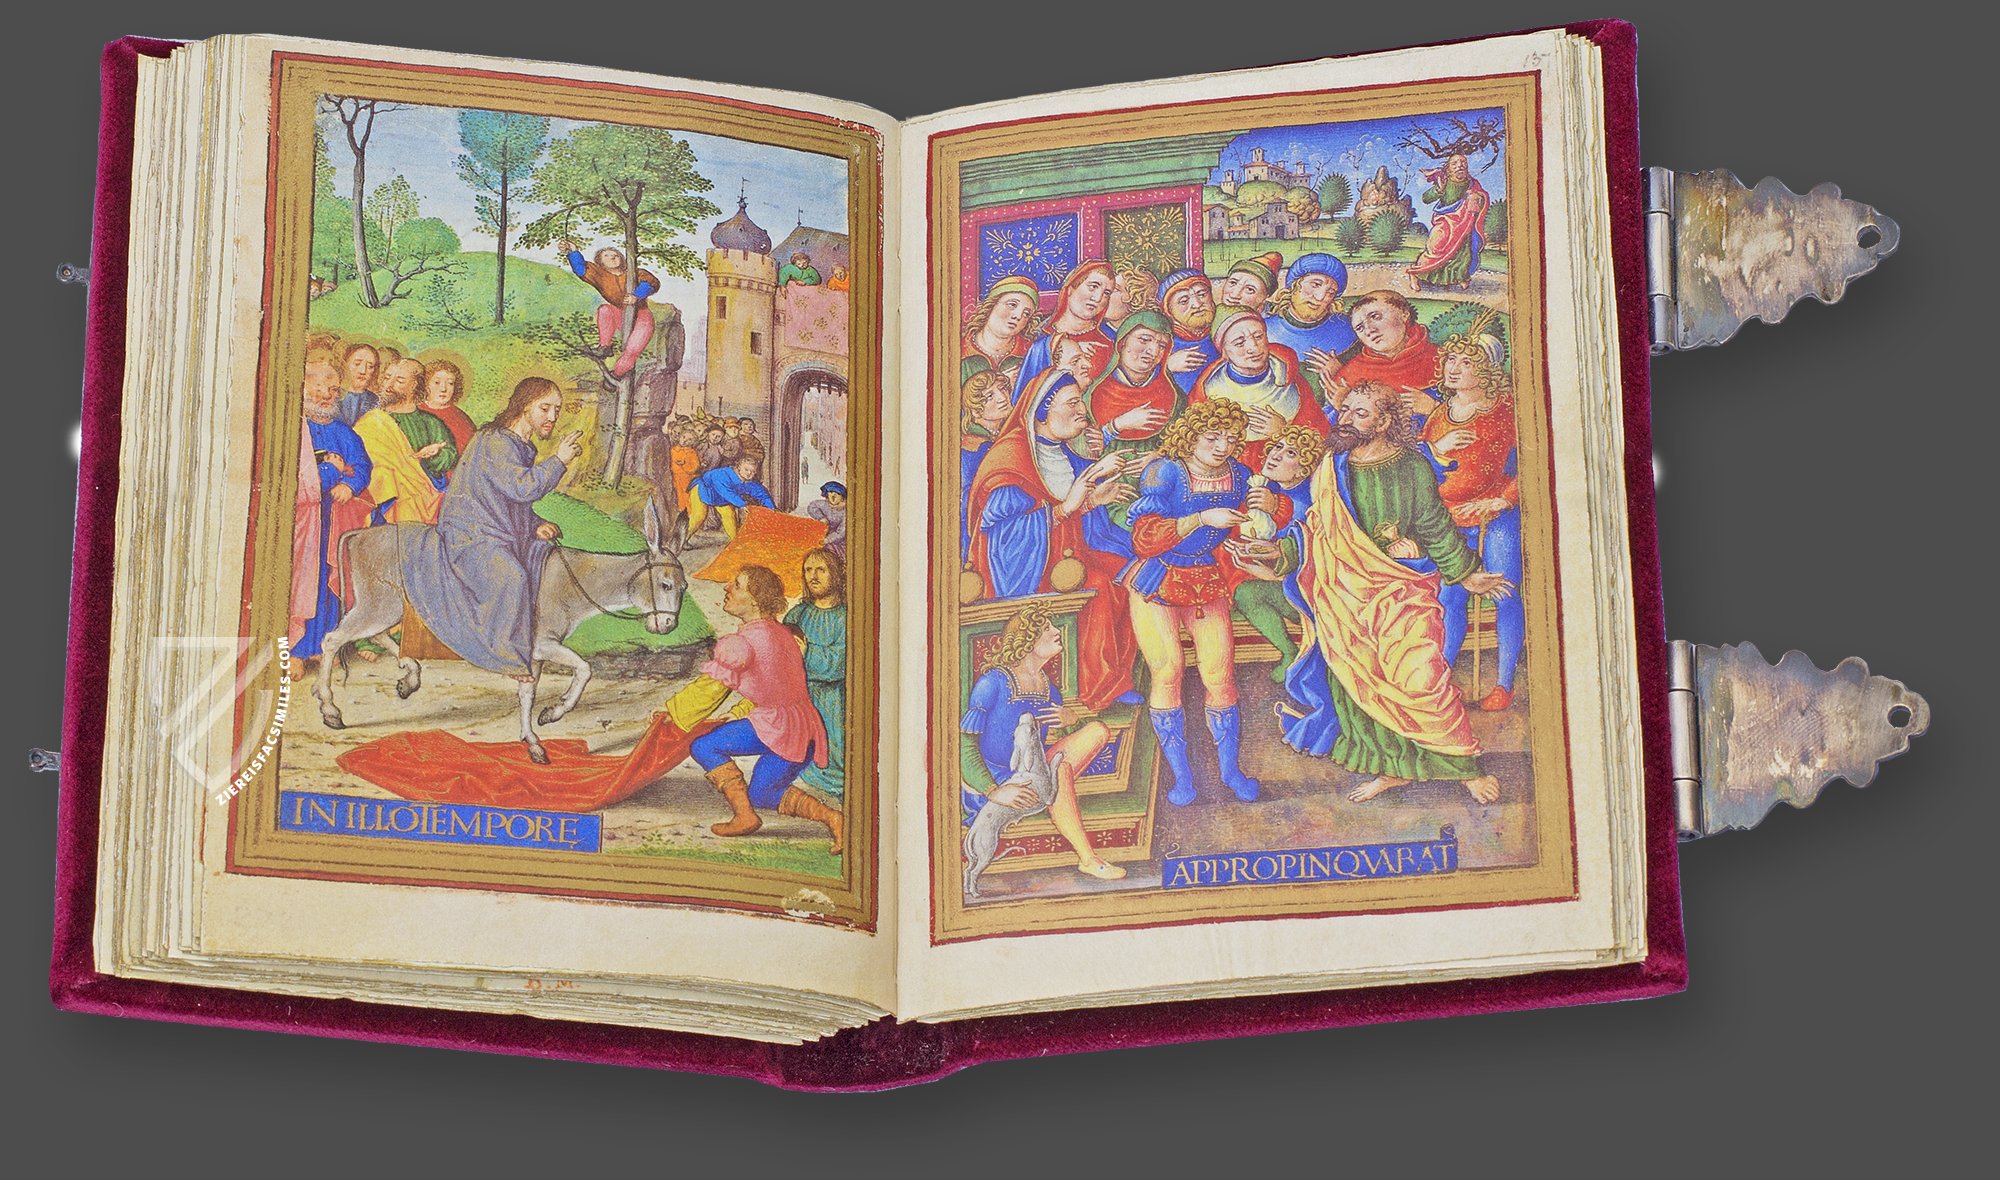 IN ILLO TEMPORE
B.M.
13
APPROPINQVABAT
ZIEREISFACSIMILES.COM